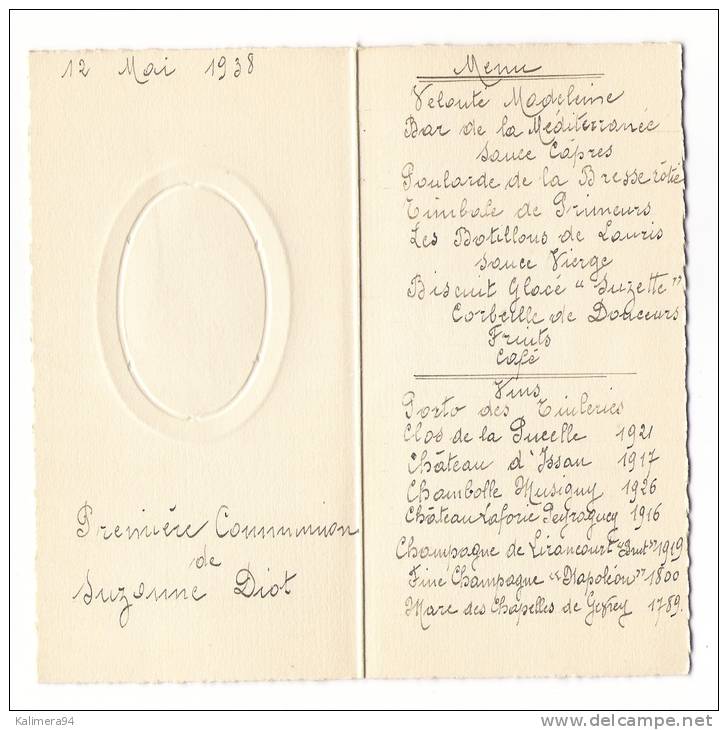 12 Mai 1938
Première Communion
de
Suzanne Diot
Menu
Velouté Madeleine
Bar de la Méditerranée
sauce Câpres
Poularde de la Bresse rôtie
Timbale de Primeurs
Les Botillons de Lauris
sauce Vierge
Biscuit Glacé "Suzette"
Corbeille de Douceurs
Fruits
Café
Vins
Porto des Tuileries
Clos de la Pucelle 1921
Château d'Issan 1917
Chambolle Musigny 1926
Château Laforie Peyraguey 1916
Champagne de Lirancourt "Brut" 1919
Fine Champagne "Napoléon" 1800
Marc des Chapelles de Gevrey 1789.
Kalimera94
delcampe.net